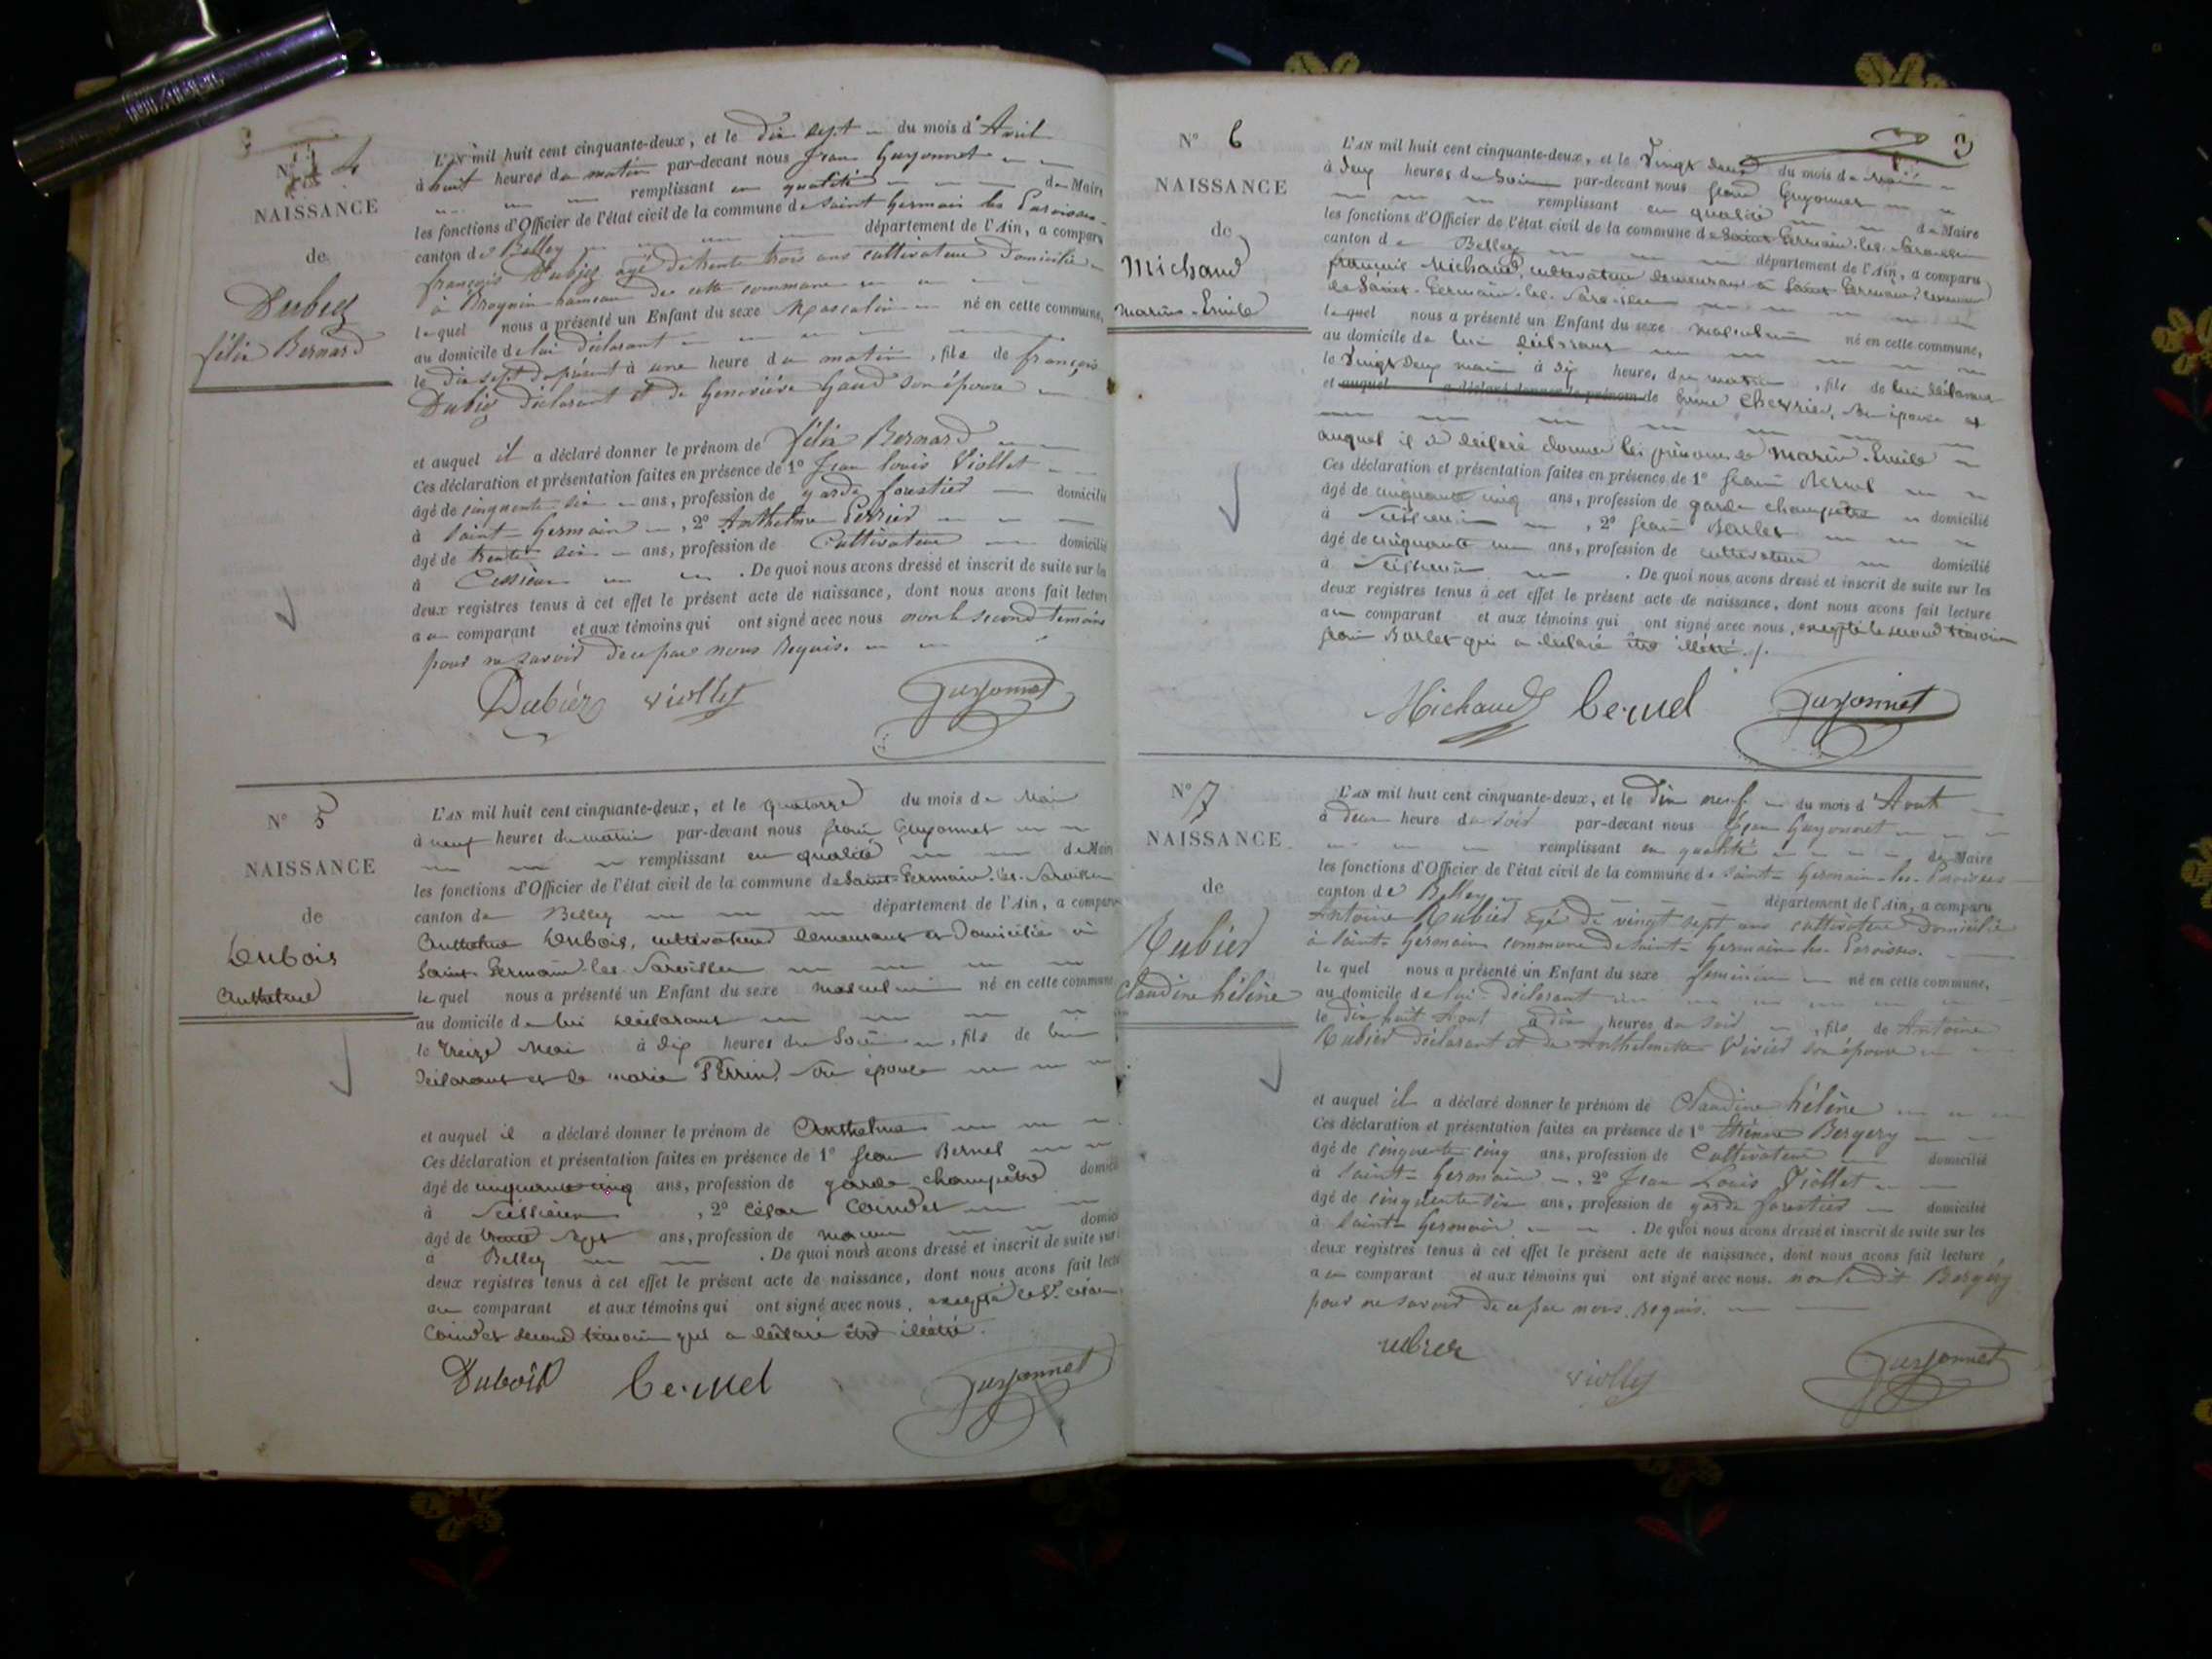 N° 4
NAISSANCE
de
Dubiez
félix Bernard
L'AN mil huit cent cinquante-deux, et le dix sept du mois d'Avril
à huit heures du matin par-devant nous Jean Guyonnet
remplissant en qualité de Maire
les fonctions d'Officier de l'état civil de la commune de Saint Germain les Paroisses
canton de Belley département de l'Ain, a comparu
françois Dubiez agé de trente trois ans cultivateur domicilié
à hameau de cette commune
lequel nous a présenté un Enfant du sexe Masculin né en cette commune,
au domicile de lui déclarant
le dix sept du présent à une heure du matin, fils de françois
Dubiez déclarant et de Geneviève Gaud son épouse
et auquel il a déclaré donner le prénom de félix Bernard
Ces déclaration et présentation faites en présence de 1° Jean louis Viollet
âgé de cinquante six ans, profession de garde forestier domicilié
à Saint Germain, 2° Anthelme Perrier
âgé de trente six ans, profession de Cultivateur domicilié
à Cessieux. De quoi nous avons dressé et inscrit de suite sur les
deux registres tenus à cet effet le présent acte de naissance, dont nous avons fait lecture
au comparant et aux témoins qui ont signé avec nous non le second témoins
pour ne savoir de ce par nous Requis.
Dubiéz viollet Guyonnet
N° 5
NAISSANCE
de
Dubois
Anthelme
L'AN mil huit cent cinquante-deux, et le quatorze du mois de Mai
à neuf heures du matin par-devant nous Jean Guyonnet
remplissant en qualité de Maire
les fonctions d'Officier de l'état civil de la commune de Saint-Germain-les-Paroisses
canton de Belley département de l'Ain, a comparu
Anthelme Dubois, cultivateur demeurant et domicilié à
Saint-Germain-les-Paroisses
lequel nous a présenté un Enfant du sexe masculin né en cette commune
au domicile de lui déclarant
le treize Mai à dix heures du Soir, fils de lui
déclarant et de marie Perrin, son épouse
et auquel il a déclaré donner le prénom de Anthelme
Ces déclaration et présentation faites en présence de 1° Jean Bernel
âgé de cinquante cinq ans, profession de garde champêtre domicilié
à, 2° César Coindet
âgé de trente sept ans, profession de maçon domicilié
à Belley. De quoi nous avons dressé et inscrit de suite sur
deux registres tenus à cet effet le présent acte de naissance, dont nous avons fait lecture
au comparant et aux témoins qui ont signé avec nous, excepté le Sr. César
Coindet second témoin qui a déclaré être illétré.
Dubois bernel Guyonnet
3
N° 6
NAISSANCE
de
Michaud
Marin-Emile
L'AN mil huit cent cinquante-deux, et le Vingt deux du mois de Mai
à deux heures du Soir par-devant nous Jean Guyonnet
remplissant en qualité de Maire
les fonctions d'Officier de l'état civil de la commune de Saint-Germain-les-Paroisses
canton de Belley département de l'Ain, a comparu
françois Michaud, cultivateur demeurant à Saint-Germain, commune
de Saint-Germain-les-Paroisses
lequel nous a présenté un Enfant du sexe masculin né en cette commune,
au domicile de lui déclarant
le Vingt deux mai à dix heures du matin, fils de lui déclarant
et auquel a déclaré donner le prénom de Chevrier, son épouse et
auquel il a déclaré donner les prénoms de Marin-Emile
Ces déclaration et présentation faites en présence de 1° Jean Bernel
âgé de cinquante cinq ans, profession de garde champêtre domicilié
à, 2° Jean Barlet
âgé de cinquante un ans, profession de cultivateur domicilié
à. De quoi nous avons dressé et inscrit de suite sur les
deux registres tenus à cet effet le présent acte de naissance, dont nous avons fait lecture
au comparant et aux témoins qui ont signé avec nous, excepté le second témoin
Jean Barlet qui a déclaré être illétré./.
Michaud bernel Guyonnet
N° 7
NAISSANCE
de
Rubier
Claudine hélène
L'AN mil huit cent cinquante-deux, et le dix neuf du mois d'Aout
à deux heure du soir par-devant nous Jean Guyonnet
remplissant en qualité de Maire
les fonctions d'Officier de l'état civil de la commune de Saint-Germain-les-Paroisses
canton de Belley département de l'Ain, a comparu
Antoine Rubier agé de vingt sept ans cultivateur domicilié
à Saint-Germain commune de Saint-Germain-les-Paroisses.
lequel nous a présenté un Enfant du sexe féminin né en cette commune,
au domicile de lui déclarant
le dix huit Aout à dix heures du soir, fils de Antoine
Rubier déclarant et de Anthelmette Vivier son épouse
et auquel il a déclaré donner le prénom de Claudine hélène
Ces déclaration et présentation faites en présence de 1° Etienne Bergery
âgé de cinquante cinq ans, profession de Cultivateur domicilié
à Saint-Germain, 2° Jean Louis Viollet
âgé de cinquante six ans, profession de garde forestier domicilié
à Saint-Germain. De quoi nous avons dressé et inscrit de suite sur les
deux registres tenus à cet effet le présent acte de naissance, dont nous avons fait lecture
au comparant et aux témoins qui ont signé avec nous. non le dit Bergery
pour ne savoir de ce par nous requis.
rubier viollet Guyonnet